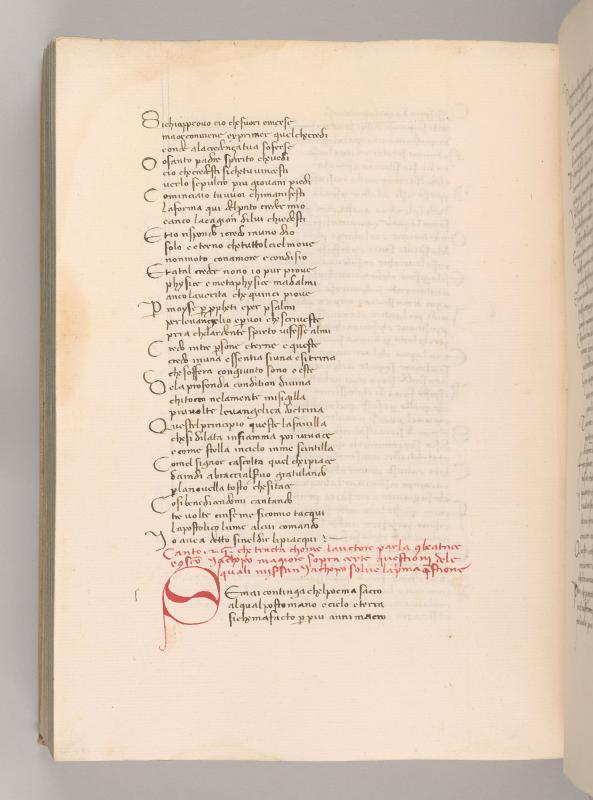 Sichiapprovo cio chefuori emerse
maor conviene exprimer quel checredi
eonde alacredenza tua soferse
O santo padre spirito chevedi
cio checredesti sichetu vincesti
verlo sepulcro piu giovani piedi
Cominciaio tuvuoi chimanifesti
laforma qui delpnto creder mio
eanco lacagion dilui chiedesti
Et io rispondo icredo inuno dio
solo e eterno chetuttol cielmove
nonmoto conamore e condisio
Et atal creder nono io pur prove
physice e metaphysice madalmi
anco laverita che quinci piove
P moyse p ppheti e per psalmi
per levangelio epvoi che scriveste
poi chelardente spirto vifesse almi
Credo intre psone eterne e queste
credo inuna essentia si una e sitrina
che soffera congiunto sono e este
Dela profonda condition divina
chitocco nelamente misigilla
piu volte levangelica doctrina
Questel principio queste lafavilla
chesi dilata infiamma poi vivace
e come stella incielo inme scintilla
Comel signor cascolta quel chepiace
daindi abracciasl suo gratulando
p lanovella tosto chesitace
Cosi benedicendomi cantando
tre volte cinseme sicomio tacqui
lapostolico lume alcui comando
Io avea detto sineldir lipiacqui
Canto .25. che tracta chome lauctore parla 9beatrice
e 9sco Iachopo magiore sopra certe questioni dele
quali missun Iachopo solve la pma qstione
Se mai continga chelpoema sacro
alqual posto mano e cielo e terra
sichema facto p piu anni macro